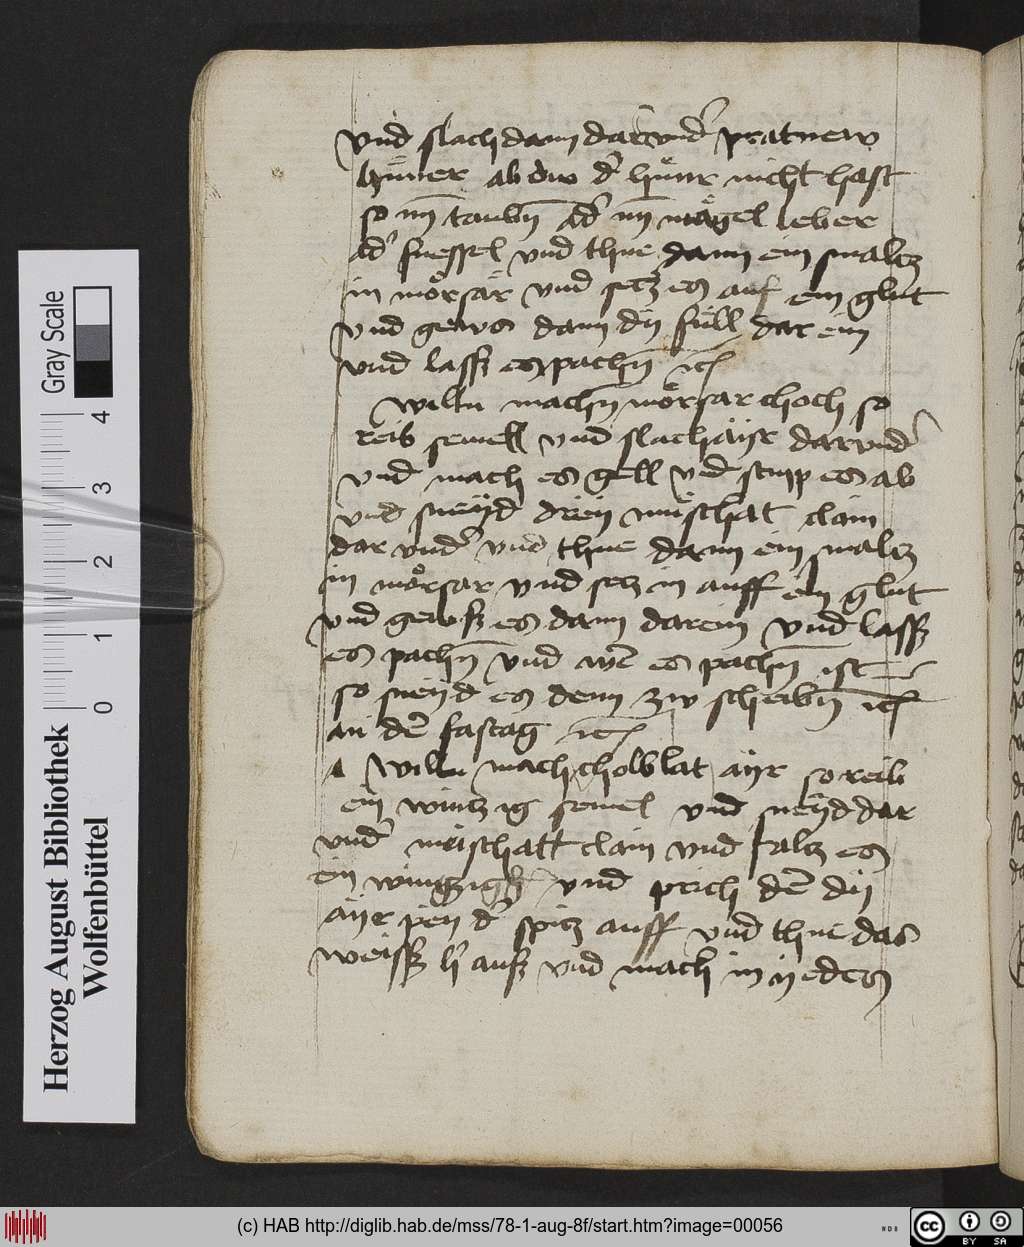 vnd slach dann dar vnd' pratnew
hüner ab dw d' hünr nicht hast
so nӯ taubn̄ ad' nӯ magel leber
ad' fuessel vnd thue dann ein smalcz
in mörsär vnd secz es auf ein glut
vnd gews dann dÿ füll dar ein
vnd lassz es pachn̄ ꝛc
wiltu machn̄ mörsar choch so
reib semell vnd slach aÿr dar vnd'
vnd mach es gell vnd stupp es ab
vnd sneÿd dreÿ muschat clain
dar vnd' vnd thue dann ein smalcz
in mörsar vnd secz in auff ein glut
vnd gewsz es dann darein vnd lassz
es pachn̄ vnd wen̄ es pachn̄ ist
so sneyd es denn zw scheibn̄ ꝛc
an dē fastag ꝛc
Wiltu mach cholblat aÿr so reib
ein winczig semel vnd sneÿd dar
vnd' muschatt clain vnd salcz es
ein vnd prich dē dÿ
aÿr peÿ d' spicz auff vnd thue das
weissz h' ausz vnd mach in ÿedes
Gray Scale
0 1 2 3 4
Herzog August Bibliothek
Wolfenbüttel
(c) HAB http://diglib.hab.de/mss/78-1-aug-8f/start.htm?image=00056
WDB
cc
BY SA